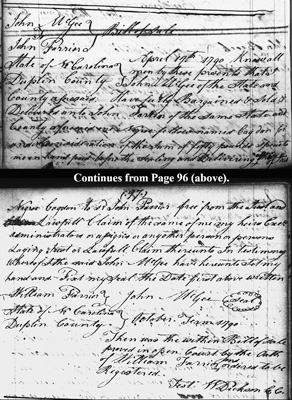 John McGee
To } Bill of Sale
John Farrior
State of No Carolina } April 19th 1790 Know all
Duplin County } men by these presents that I
John McGee of the State and
County aforesaid Have this day Bargained & Sold &
Delivered unto John of the Same State and
County aforesaid one Negro fellow named Caydon
in consideration of the sum of fifty pounds Specie
me in hand paid before the sealing and Delivering of the
Continues from Page 96 (above).
(97)
Negro unto said John free from the and
Lawfull Claim of him me my heirs Exec
administrators or assigns or any other person or persons
Laying Just or Lawfull Claim thereunto In testimony
whereof I the said John McGee have hereunto set my
hand and fixt my seal the Date first above written
William Farrior John McGee (Seal)
State of No Carolina }
Duplin County } October Term 1790
Then was the within Bill of Sale
proved in open Court by the Oath
of William Farrior & ordered to be
Registered.
Test W Dickson C.C.